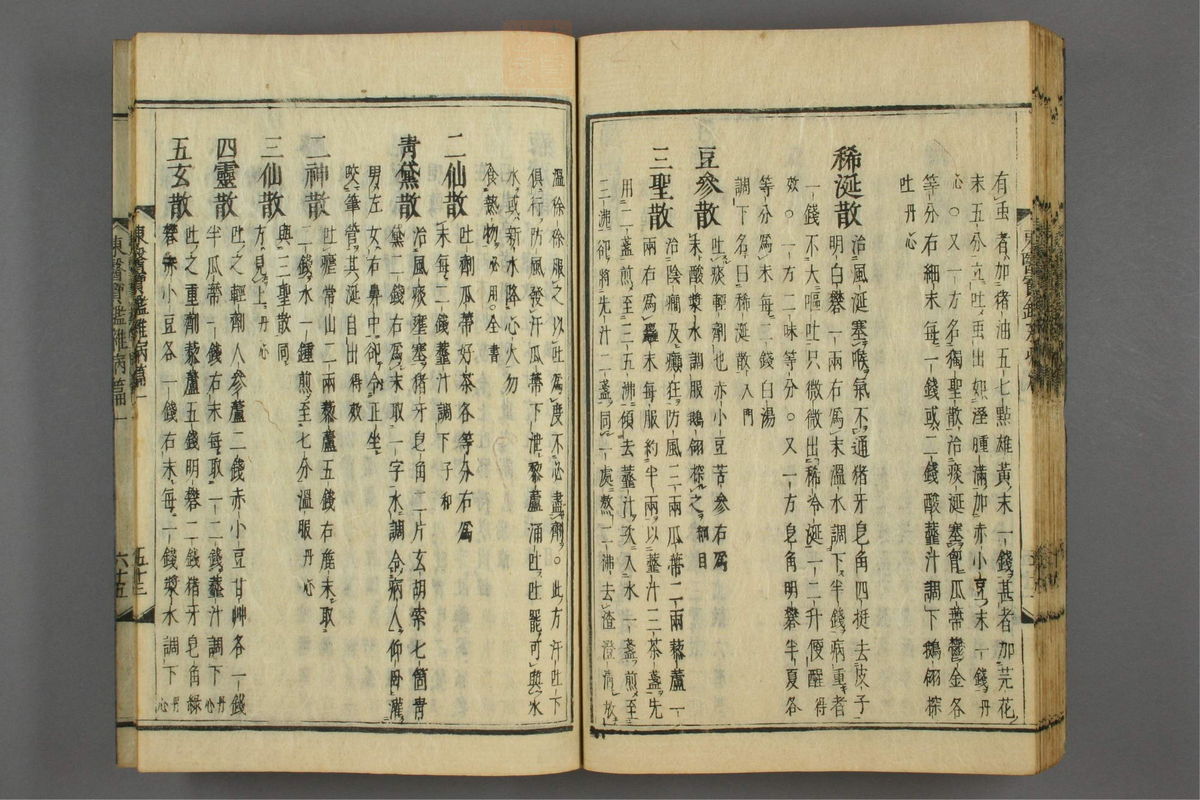 有虫者加猪油五七點雄黃末一錢甚者加芫花
末五分立吐虫出如溼腫滿加赤小豆末一錢丹
心○又一方名獨聖散治痰涎塞胷瓜蒂鬱金各
等分右細末每一錢或二錢酸虀汁調下鵝翎探
吐丹心
稀涎散 治風涎塞喉氣不通猪牙皂角四挺去皮子
明白礬一兩右爲末溫水調下半錢病重者
一錢不大嘔吐只微微出稀冷涎一二升便醒得
效○一方二味等分○又一方皂角明礬半夏各
等分爲末每二錢白湯
調下名曰稀涎散入門
豆參散 吐痰輕劑也赤小豆苦參右爲
末酸漿水調服鵝翎探之綱目
三聖散 治陰癎及癲狂防風三兩瓜蒂二兩藜蘆一
兩右爲麤末每服約半兩以虀汁三茶盞先
用二盞煎至三五沸傾去虀汁次入水一盞煎至
三沸卻將先汁二盞同一處熬二沸去渣澄淸放
溫徐徐服之以吐爲度不必盡劑○此方汗吐下
俱行防風發汗瓜蒂下泄藜蘆涌吐吐罷可與氷
水或新水降心火勿
食熱物必用全書
二仙散 吐劑瓜蒂好茶各等分右爲
末每二錢虀汁調下子和
靑黛散 治風痰壅塞猪牙皂角二片玄胡索七箇靑
黛二錢右爲末取一字水調令病人仰卧灌
男左女右鼻中卻令正坐
咬筆管其涎自出得效
二神散 吐瘧常山二兩藜蘆五錢右麁末取
二錢水一鍾煎至七分溫服丹心
三仙散 與三聖散同
方見上丹心
四靈散 吐之輕劑人參蘆二錢赤小豆甘艸各一錢
半瓜蒂一錢右末每取一二錢虀汁調下丹心
五玄散 吐之重劑藜蘆五錢明礬二錢猪牙皂角綠
礬赤小豆各一錢右末每一錢漿水調下丹心
東醫寶鑑雜病篇一
五十三
六十五